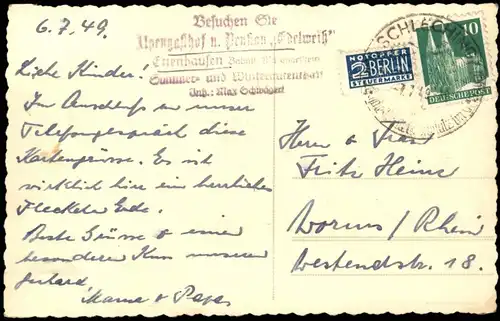 6.7.49.
Besuchen Sie
Alpengasthof u. Pension „Edelweiß“
Sommer- und Winteraufenthalt
Inh.: Max Schwägerl
Liebe Kinder!
Im Anschluß an unser
Telefongespräch diese
Kartengrüsse. Es ist
wirklich hier ein herrliches
Fleckchen Erde.
Beste Grüsse & einen
besonderen Kuss unserem
Gerhard,
Mama & Papa
NOTOPFER
2 BERLIN
STEUERMARKE
10
DEUTSCHE POST
SCHLECHING
Herrn u. Frau
Fritz Heine
Worms / Rhein
Westendstr. 18.